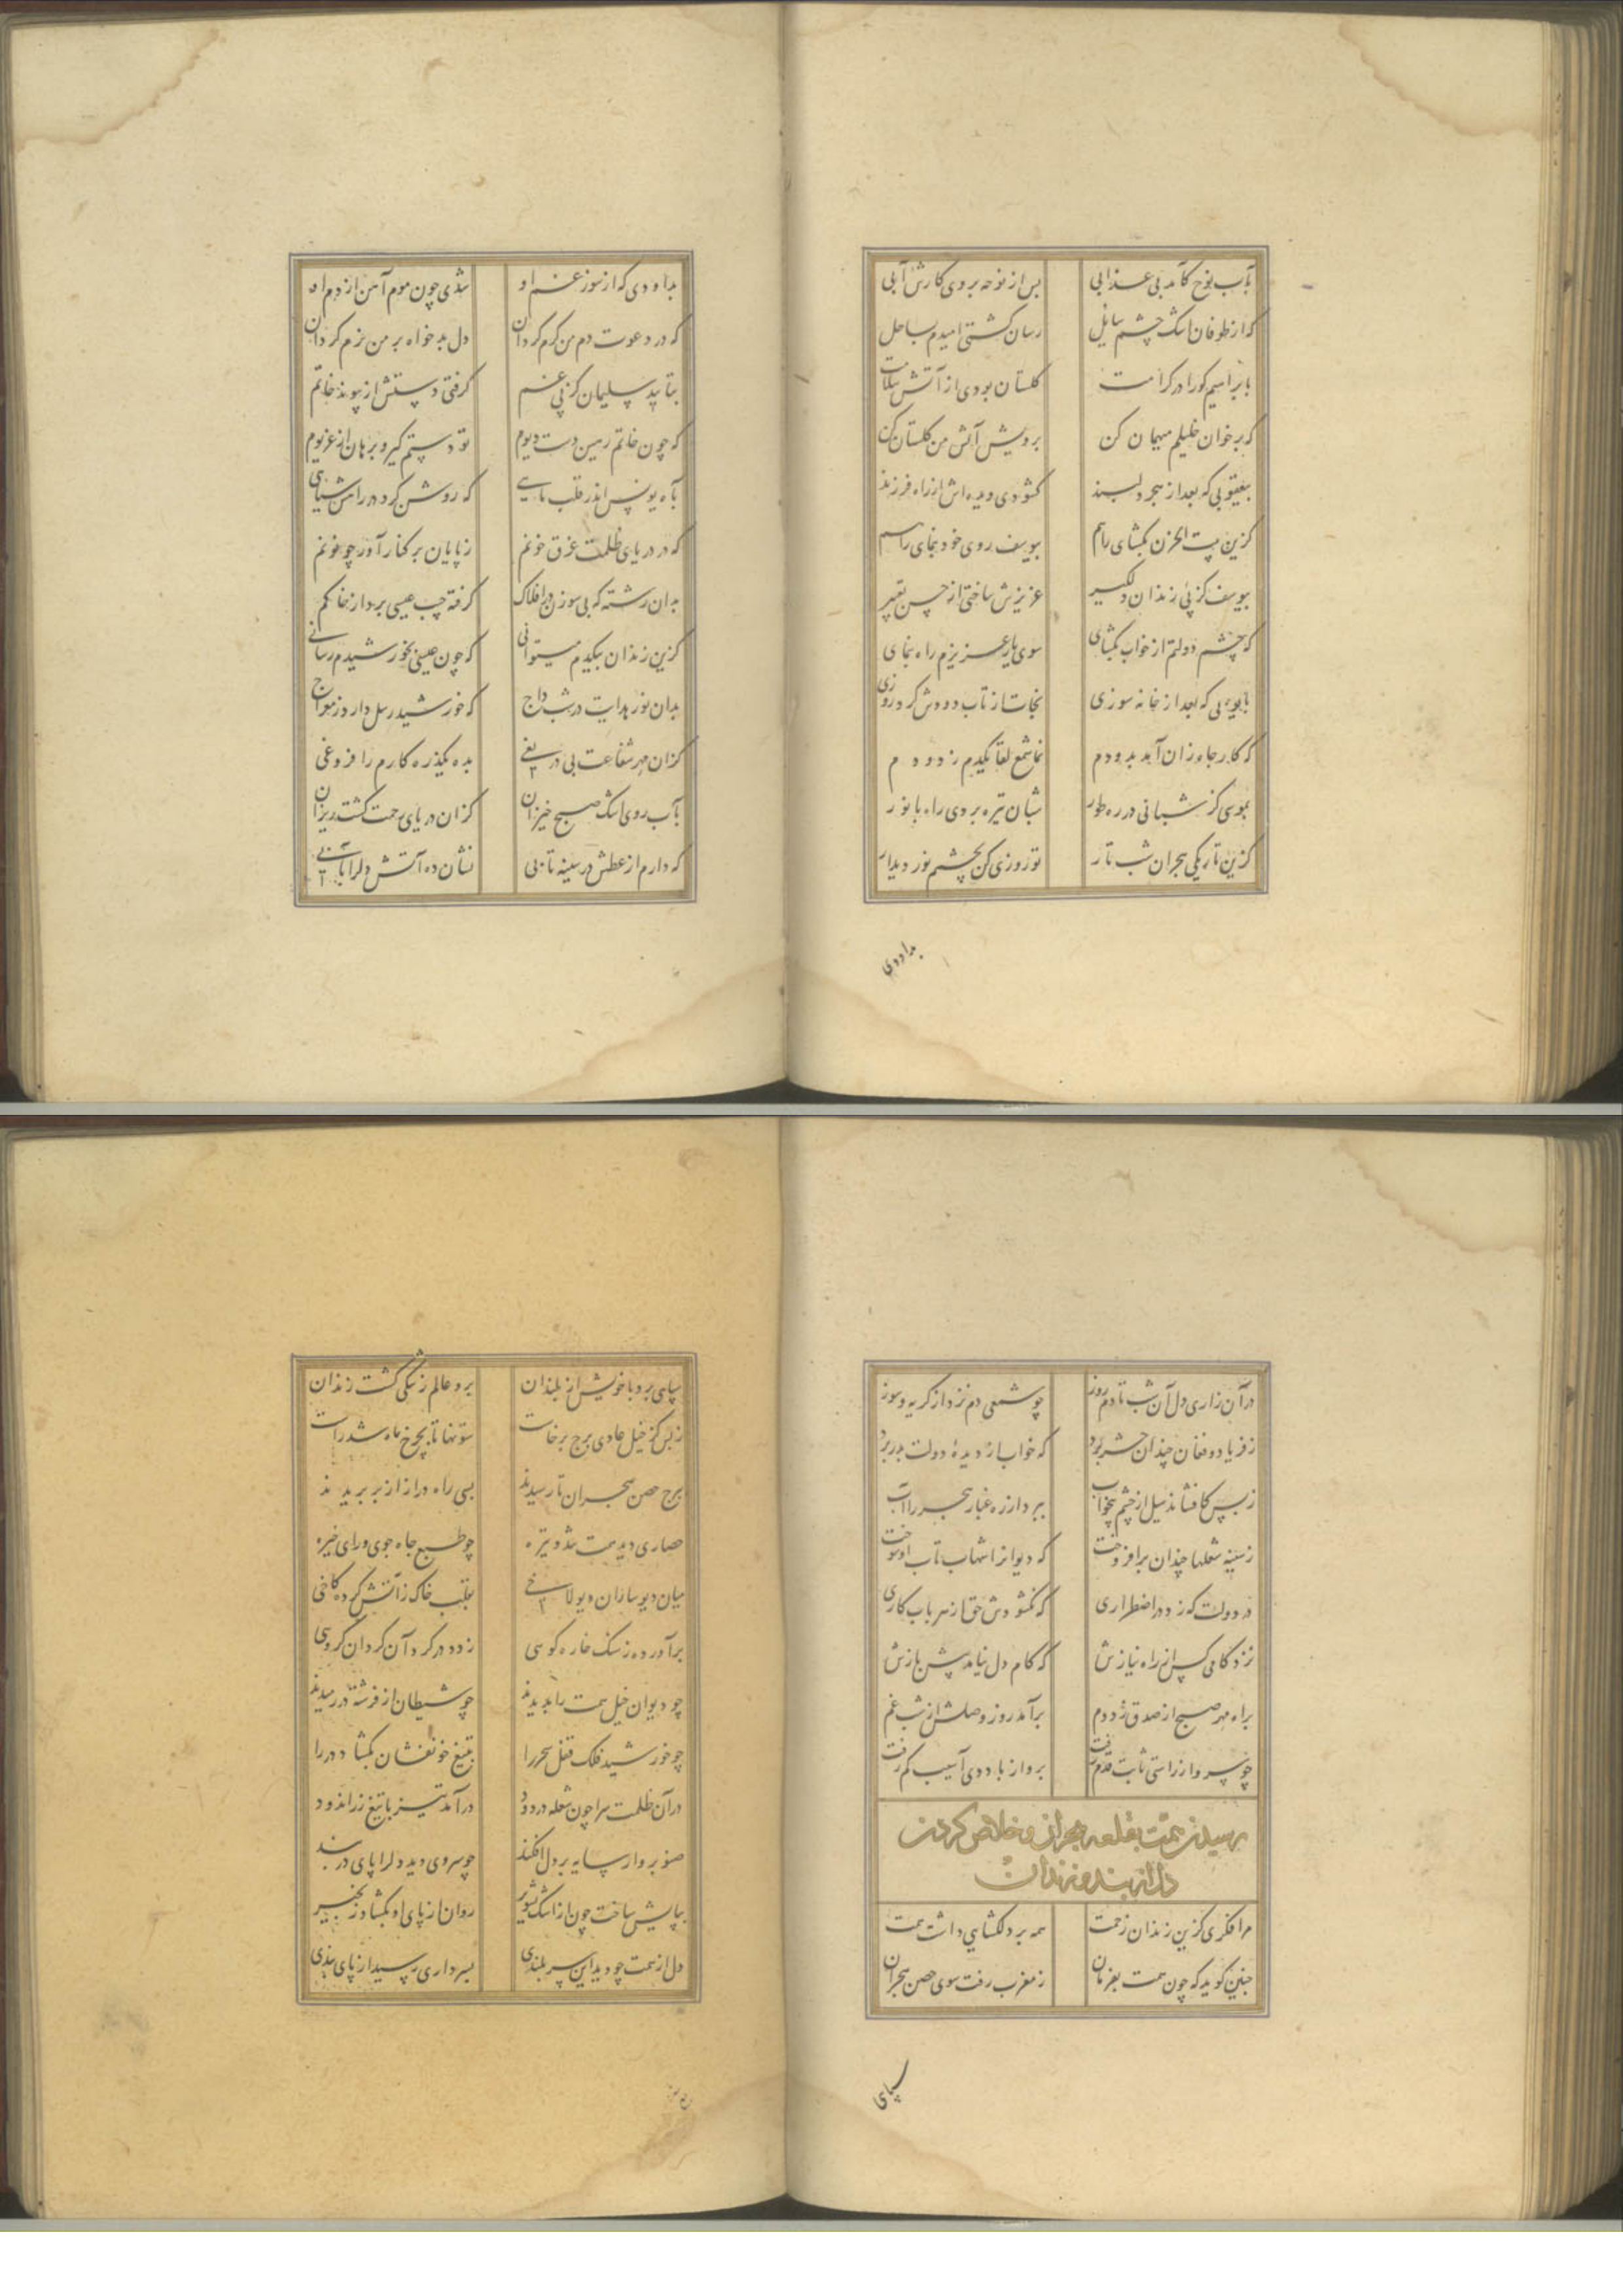 بآب نوح کآمد بی عذابی پس از نوحه بروی کارش آبی
که از طوفان اشک چشم سایل رسان کشتی امیدم بساحل
بابراهیم کورا در کرامت کلستان بودی از آتش سلامت
که بر خوان خلیلم میهمان کن برویش آتش من کلستان کن
بیعقوبی که بعد از هجر دلبند کشودی دیده اش از راه فرزند
کزین بیت الحزن بکشای راهم بیوسف روی خود بنمای
بیوسف کز پی زندان دلکیر عزیزش ساختی از حسن تعبیر
که چشم دولتم از خواب بکشای سوی یار عزیزم راه بنمای
بایوبی که بعد از خانه سوزی نجات از تاب دودش کرد روزی
که کار جاه زان آبد بدودم نما شمع لقا یکدم ز دودم
بموسی کز شبانی در ره طور شبان تیره بردی راه با نور
کزین تاریکی هجران شب تار تو روزی کن بچشم نور دیدار
بداودی
بداودی که از سوز غم او شدی چون موم آهن از دم او
که در دعوت دم من کرم کردان دل بدخواه بر من نرم کردان
بتایید سلیمان کز پی غم کرفتی دستش از پیوند خاتم
که چون خاتم رهین دست دیوم تو دستم کیر و برهان از غریوم
بآه یونس اندر قلب ماهی که روشن کرد در راهش
که در دریای ظلمت غرق خونم ز پایان بر کنار آور چو نونم
بدان رشته که بی سوزن در افلاک کرفته جیب عیسی بردار خاکم
کزین زندان بیکدم میتوانی که چون عیسی بخورشیدم رسانی
بدان نور هدایت در شب داج که خورشید رسل دارد ز معراج
کزان مهر شفاعت بی دریغی بده یکذره کارم را فروغی
بآب روی اشک صبح خیزان کزان دریای رحمت کشت ریزان
که دارم از عطش در سینه تابی نشان ده آتش دل را بآبی
در آن زاری دل آن شب تا دم روز چو شمعی دم نزد از کریه و سوز
ز فریاد و فغان چندان حشر برد که خواب از دیدهٔ دولت بدر برد
ز بس کافشاند سیل از چشم بیخواب ببرد از ره غبار هجر را آب
ز سینه شعلها چندان برافروخت که دیو از التهاب تاب او سوخت
در دولت که زد در اضطراری که نکشودش حق از هر باب کاری
نزد کامی کس از راه نیازش که کام دل نیامد پیش بازش
براه مهر صبح از صدق زد دم برآمد روز وصلش از شب غم
چو سرو از راستی ثابت قدم رفت برو از باد دی آسیب کم رفت
رسیدن همت بقلعه هجران و خلاص کردن
دل از بند و زندان
مرا فکری کزین زندان زحمت همه بر دلکشایی داشت همت
چنین کوید که چون همت بفرمان ز مغرب رفت سوی حصن هجران
سپاهی
سپاهی برد با خویش از بلندان برو عالم ز تنکی کشت زندان
ز بس کز خیل عادی برج برخاست ستونها تا بچرخ ماه شد راست
برج حصن هجران تا رسیدند بسی راه دراز از بر بریدند
حصاری دید همت تند و تیره چو طبع جاه جوی و رای خیره
میان دیوساران دیولاخی بقلب خاک ز آتش کرده کاخی
برآورده ز سنک خاره کوسی ز دود در کرد آن کردان کروسی
چو دیوان خیل همت را بدیدند چو شیطان از فرشته در رمیدند
چو خورشید فلک قفل سحر را بتیغ خونفشان بکشاد در را
در آن ظلمت سرا چون شعله در دود درآمد تیز با تیغ زراندود
صنوبروار سایه بر دل افکند چو سروی دید دل را پای در بند
بپایش ساخت چون از اشک روان از پای او بکشاد زنجیر
دل از همت چو دید این سربلندی بسرداری رسید از پای بندی